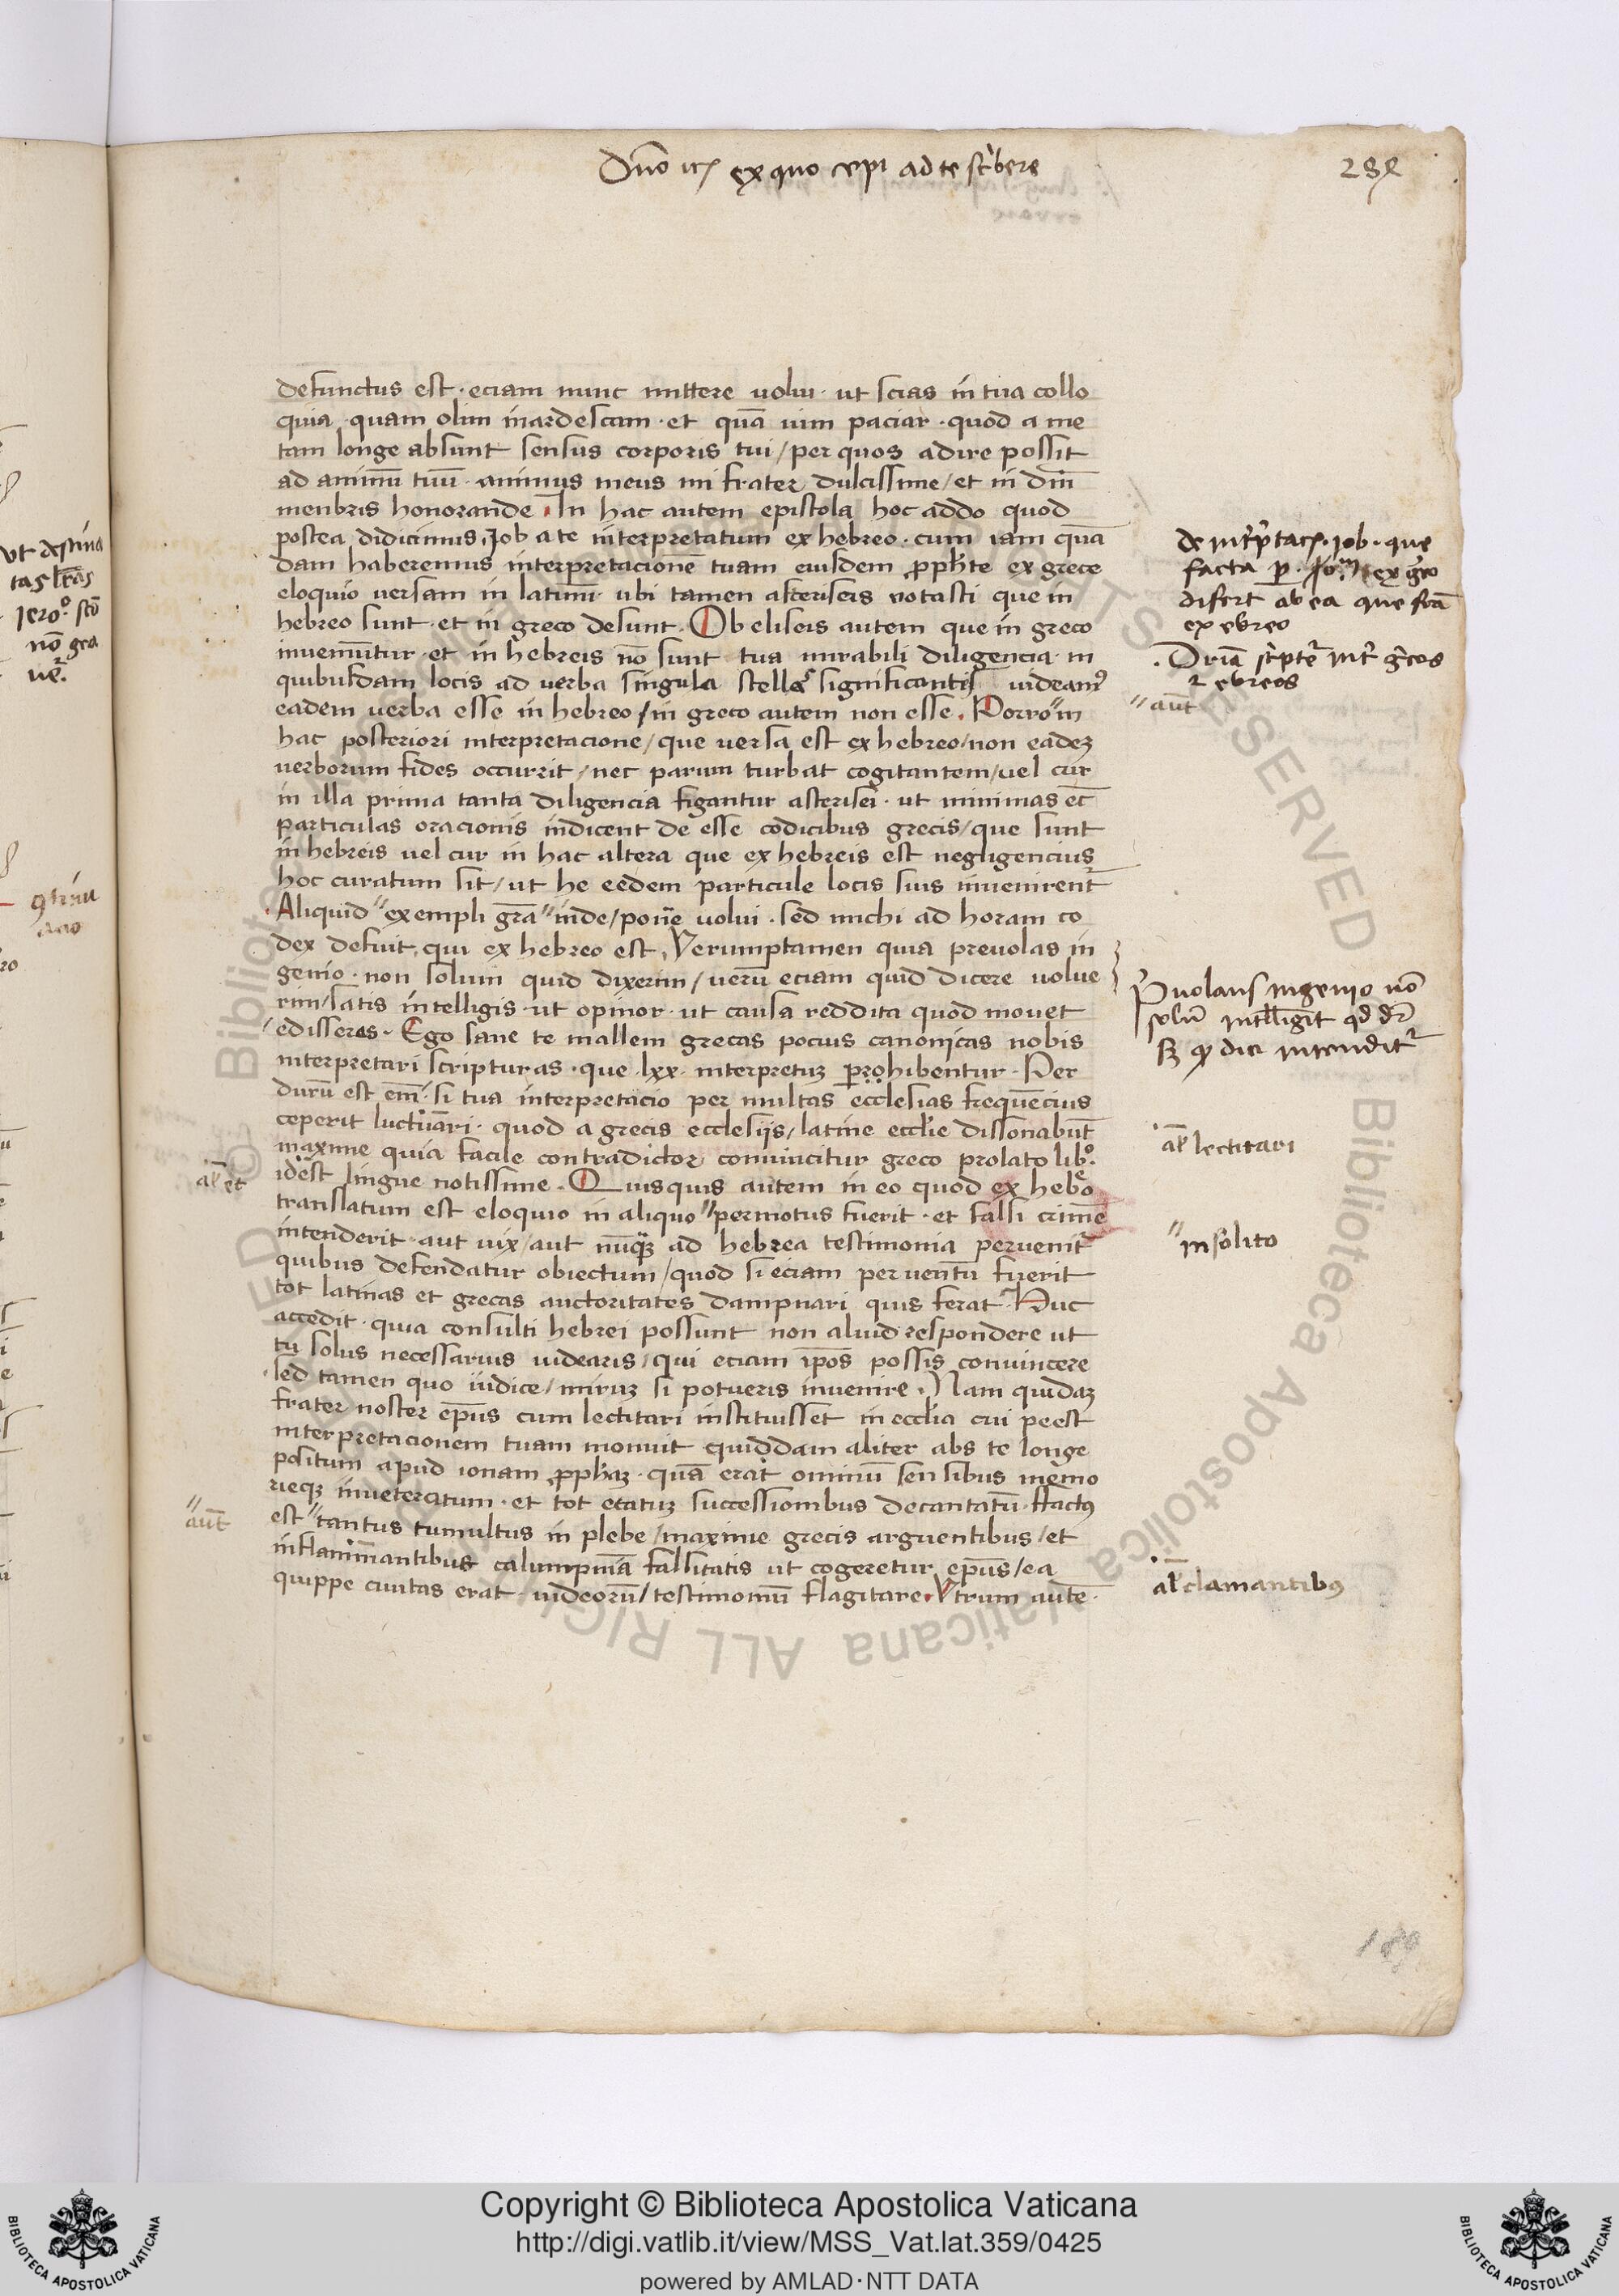 Dn̄o ex quo cepi ad te sc'bere
defunctus est · eciam nunc mittere uolui · ut scias in tua collo
quia · quam olim inardescam · et quā uim paciar · quod a me
tam longe absunt sensus corporis tui / per quos adire possit
ad animū tuū · animus meus mi frater dulcissime / et in dn̄i
menbris honorande · In hac autem epistola hoc addo quod
postea didicimus, Job a te interpretatum ex hebreo · cum iam quā
dam haberemus interpretacionē tuam eiusdem ꝓph̄te ex greco
eloquio uersam in latinū · ubi tamen asteriscis notasti que in
hebreo sunt · et in greco desunt · Obeliscis autem que in greco
inueniūtur · et in hebreis nō sunt tua mirabili diligencia · in
quibusdam locis ad uerba singula stellas significantes uideamꝰ
eadem uerba esse in hebreo / in greco autem non esse · Porro " in
hac posteriori interpretacione / que uersa est ex hebreo / non eadeꝫ
uerborum fides occurrit / nec parum turbat cogitantem / uel cur
in illa prima tanta diligencia figantur asterisci · ut minimas ec̄
particulas oracionis indicent de esse codicibus grecis / que sunt
in hebreis uel cur in hac altera que ex hebreis est negligencius
hoc curatum sit / ut he eedem particule locis suis inuenirent᷑
Aliquid " exempli gr̄a " inde / pon̄e uolui · sed michi ad horam co
dex defuit, qui ex hebreo est, Verumptamen quia preuolas in
genio · non solum quid dixerim / uerū eciam quid dicere uolue
rim / satis intelligis · ut opinor · ut causa reddita quod mouet
/ edisseres · Ego sane te mallem grecas pocius canonicas nobis
interpretari scripturas · que · lxx · interpretuꝫ perhibentur · Per
durū est em̄ · si tua interpretacio per multas ecclesias frequēcius
ceperit luctuari · quod a grecis ecclesiis / latine eccl̄ie dissonabūt
maxime quia facile contradictor conuincitur greco prolato libͦ.
idest lingue notissime · Quisquis autem in eo quod ex hebeo
translatum est eloquio in aliquo " permotus fuerit · et falsi crimē
intenderit · aut uix / aut nūqꝫ ad hebrea testimonia peruenit᷑
quibus defendatur obiectum / quod si eciam peruentū fuerit
tot latinas et grecas auctoritates dampnari quis ferat · Huc
accedit · quia consulti hebrei possunt non aliud respondere ut
tu solus necessarius uidearis / qui eciam ip̄os possis conuincere
sed tamen quo iudice / miruꝫ si potueris inuenire · Nam quidaꝫ
frater noster ep̄us cum lectitari instituisset in eccl̄ia cui peest
interpretacionem tuam monuit quiddam aliter abs te longe
positum apud ionam ꝓph̄aꝫ · quā erat ominū sensibus memo
rieqꝫ inueteratum · et tot etatuꝫ successionibus decantatū · ffactꝰ
est " tantus tumultus in plebe / maxime grecis arguentibus / et
inflammantibus calumpniā falsitatis ut cogeretur ep̄us / ea
quippe ciuitas erat · iudeorū / testimoniū flagitare · Vtrum autē ·
de int'p'tac̄e · iob · que
facta p · Jo᷑ · ex g̃co
difert ab ea que fc̄a
ex ebreo
· Dr̄iā sc'pte᷑ int' g̃cos
ꝛ ebreos
" aūt
P'uolans ingenio nō
solū intelligit qd dr̄
sꝫ qd dici intendit᷑
al̄ lectitari
al̄ et
" insolito
" aūt
al̄ clamantibꝰ
189
vt destina
tas l̄ras
iero.ͦ sc̄o
nō gra
ue᷑.
Copyright © Biblioteca Apostolica Vaticana
http://digi.vatlib.it/view/MSS_Vat.lat.359/0425
powered by AMLAD·NTT DATA
BIBLIOTECA APOSTOLICA VATICANA
BIBLIOTECA APOSTOLICA VATICANA